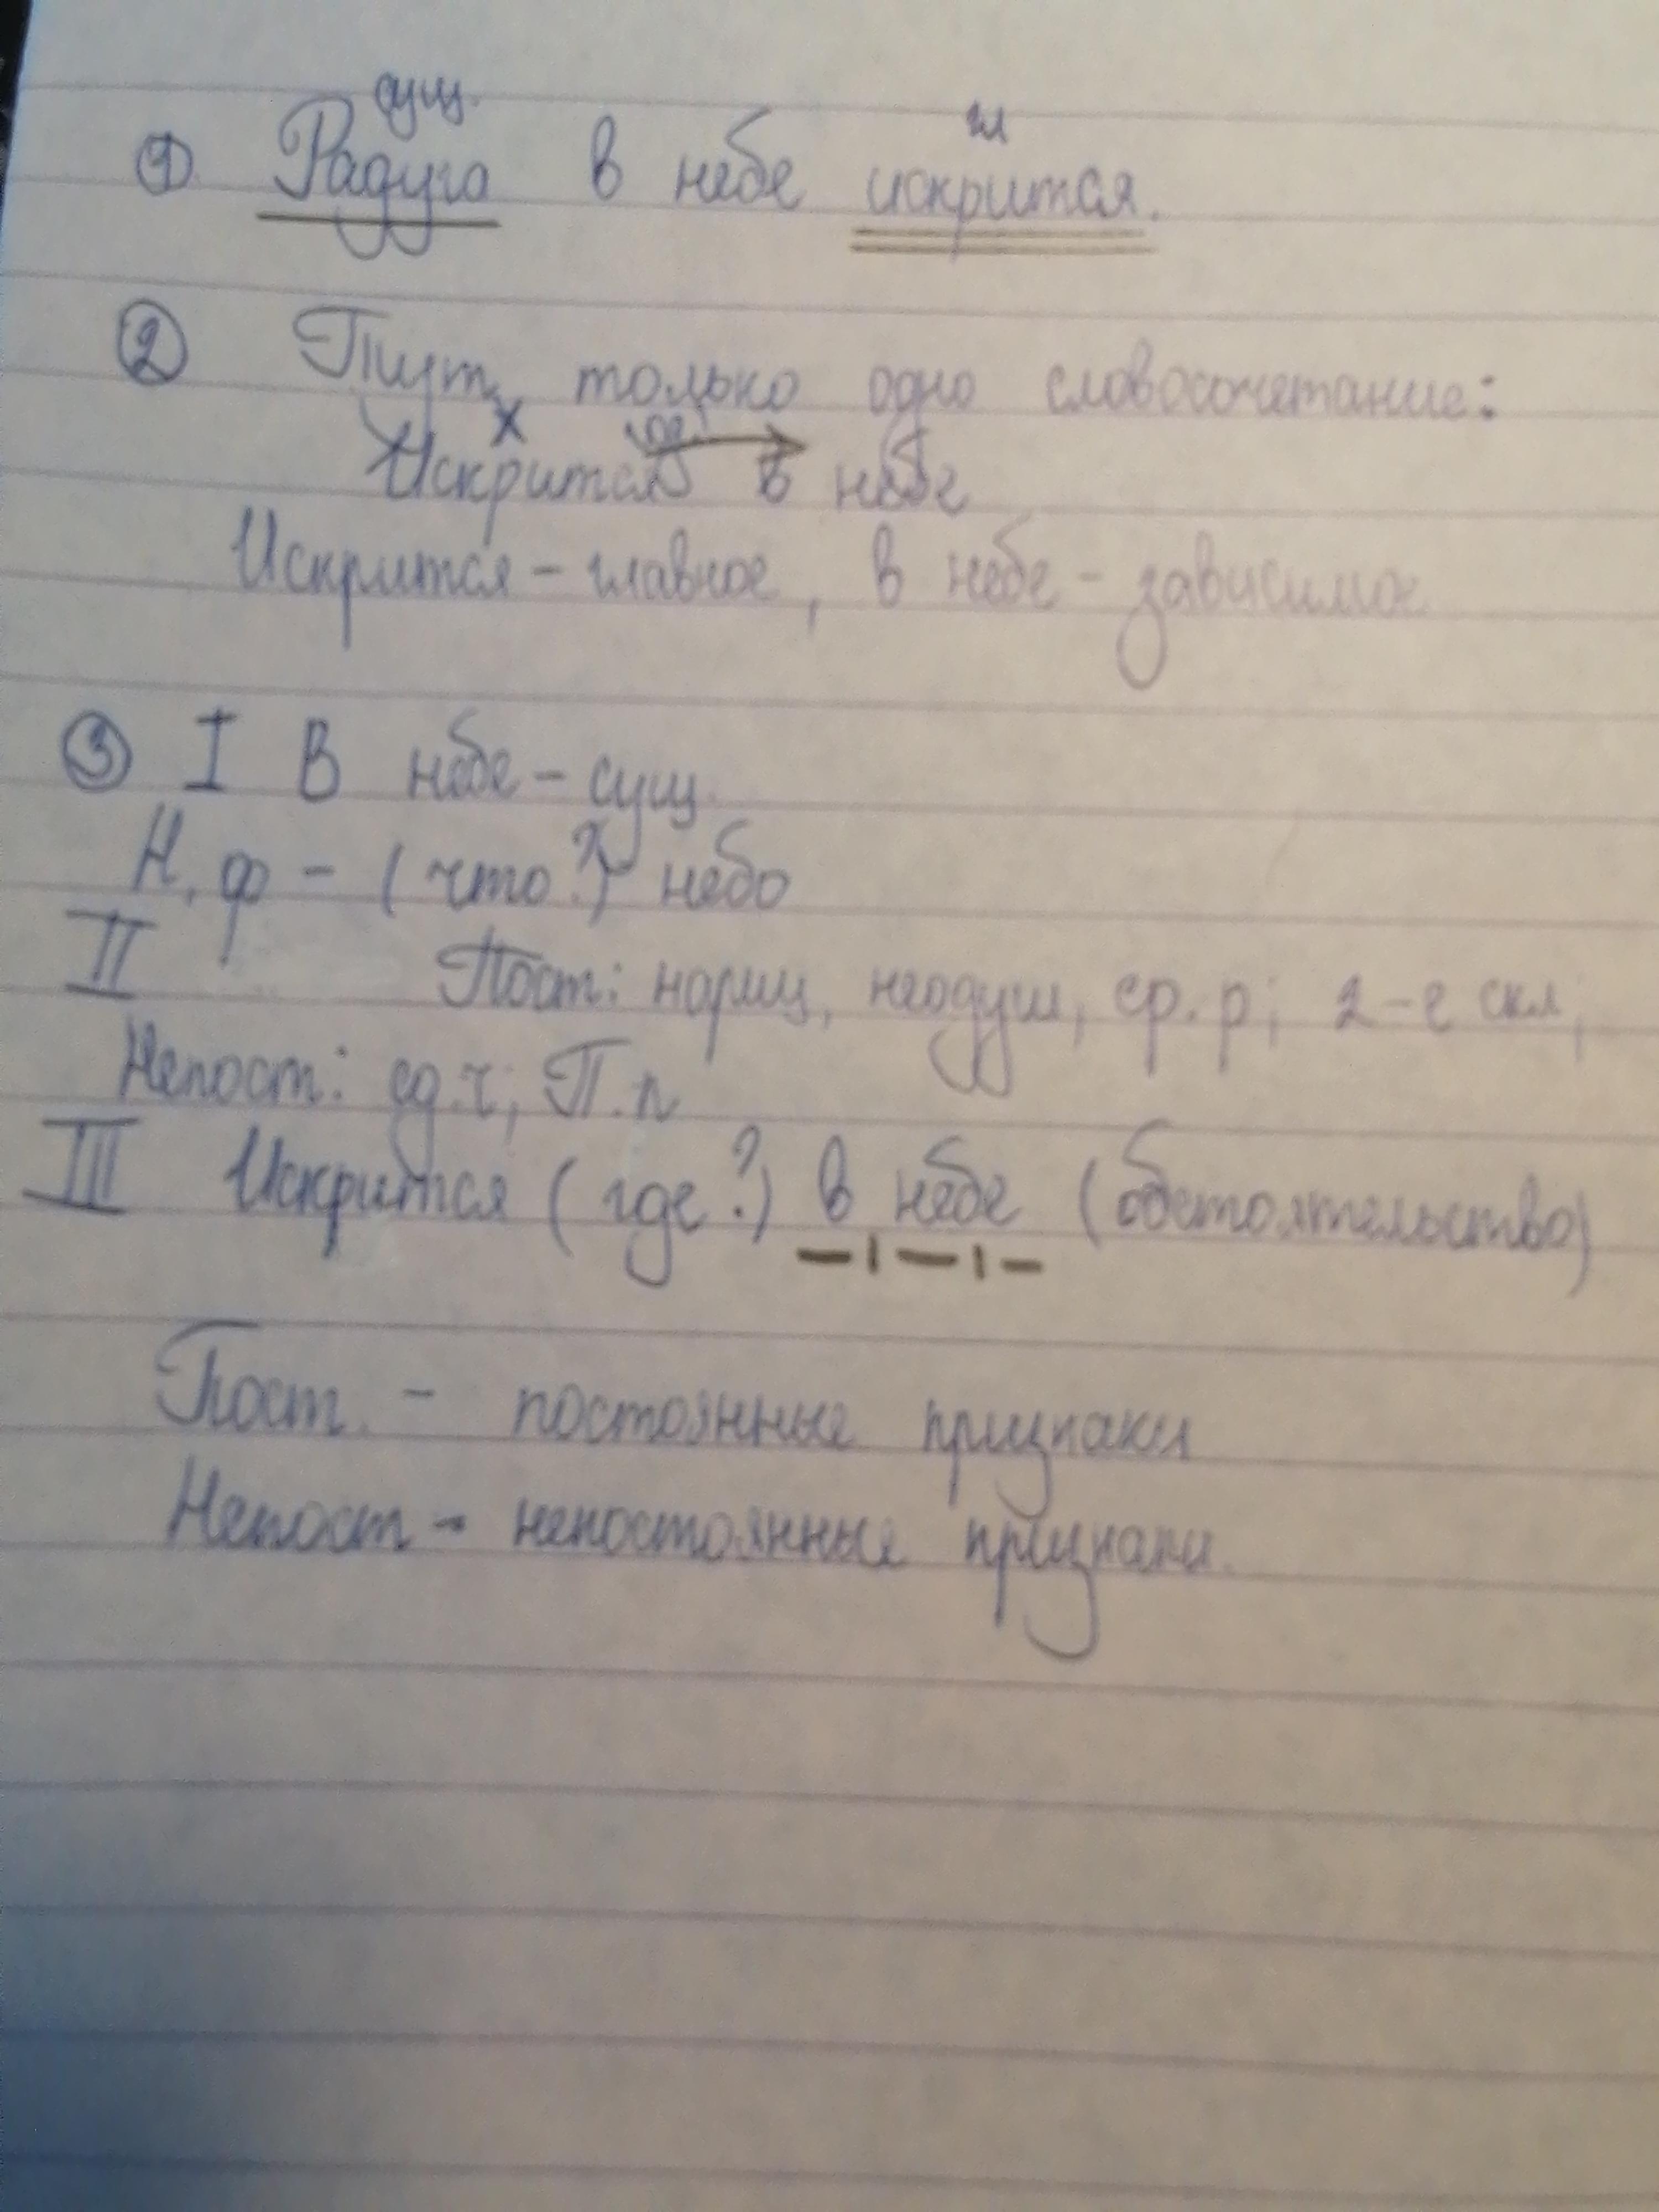 сущ. гл
① Радуга в небе искрится.
② Тут только одно словосочетание:
х где?
Искрится в небе
Искрится - главное, в небе - зависимое
③ I В небе - сущ.
Н. ф - (что?) небо
II Пост: нариц, неодуш, ср. р; 2-е скл;
Непост: ед.ч; П.п
III Искрится (где?) в небе (обстоятельство)
Пост. - постоянные признаки
Непост - непостоянные признаки.